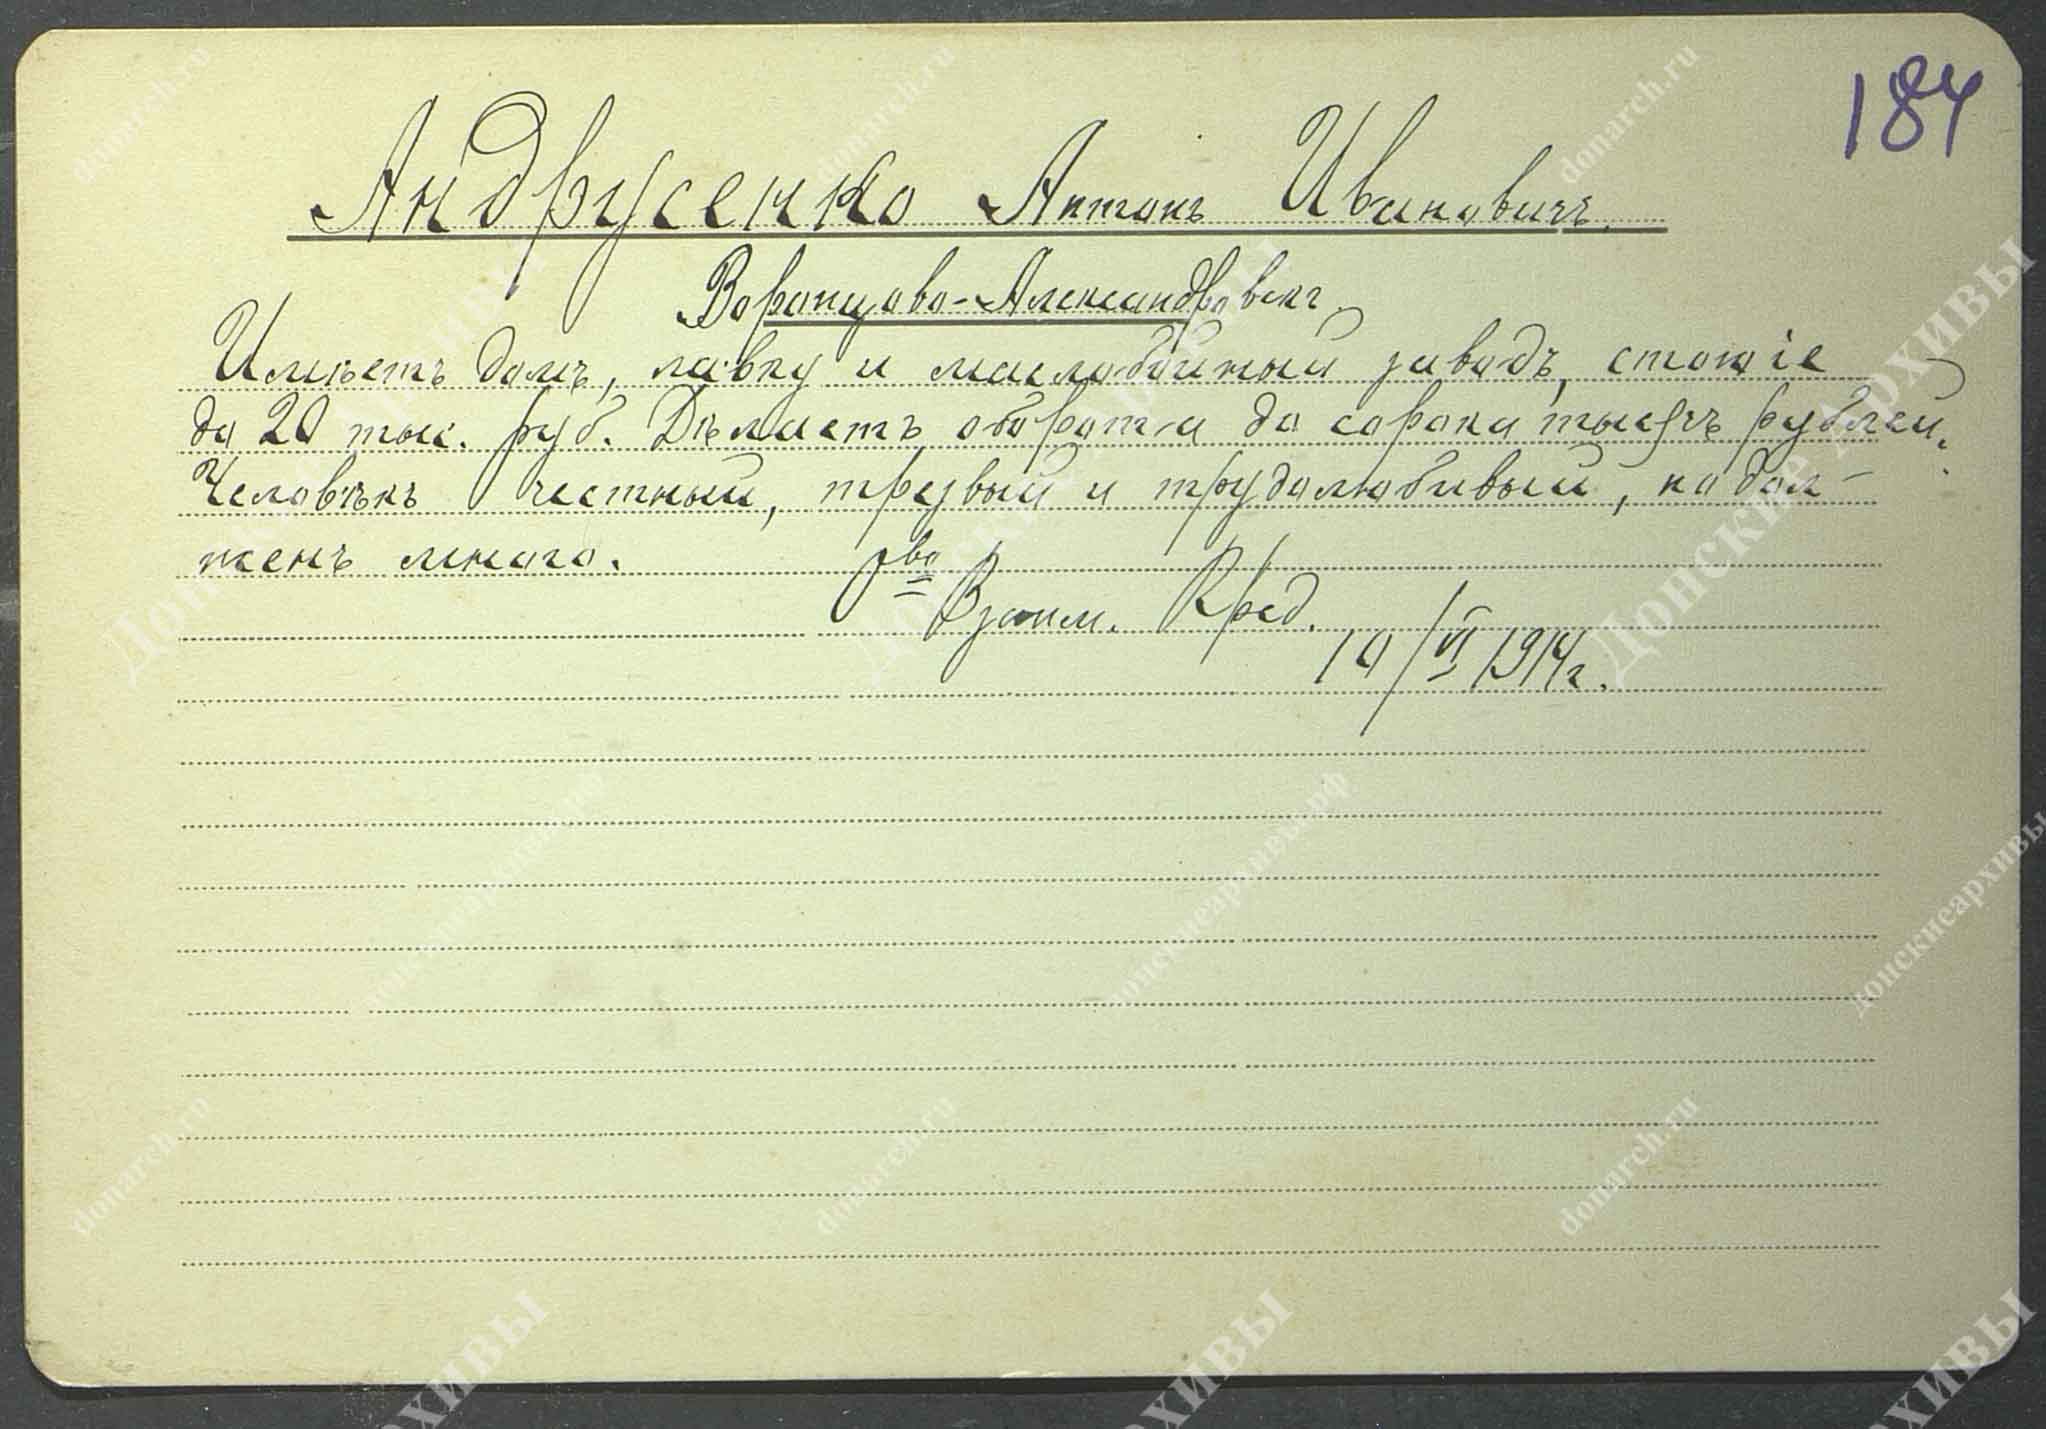 184
Андрусенко Антонъ Ивановичъ.
Воронцово-Александровск.
Имѣетъ домъ, лавку и маслобойный заводъ, стоющіе
до 20 тыс. руб. Дѣлаетъ обороты до сорока тысячъ рублей.
Человѣкъ честный, трезвый и трудолюбивый, но дол-
женъ много.
Взаим. Кред.
10/VI 1914 г.
donarch.ru
Донские архивы
донскиеархивы.рф